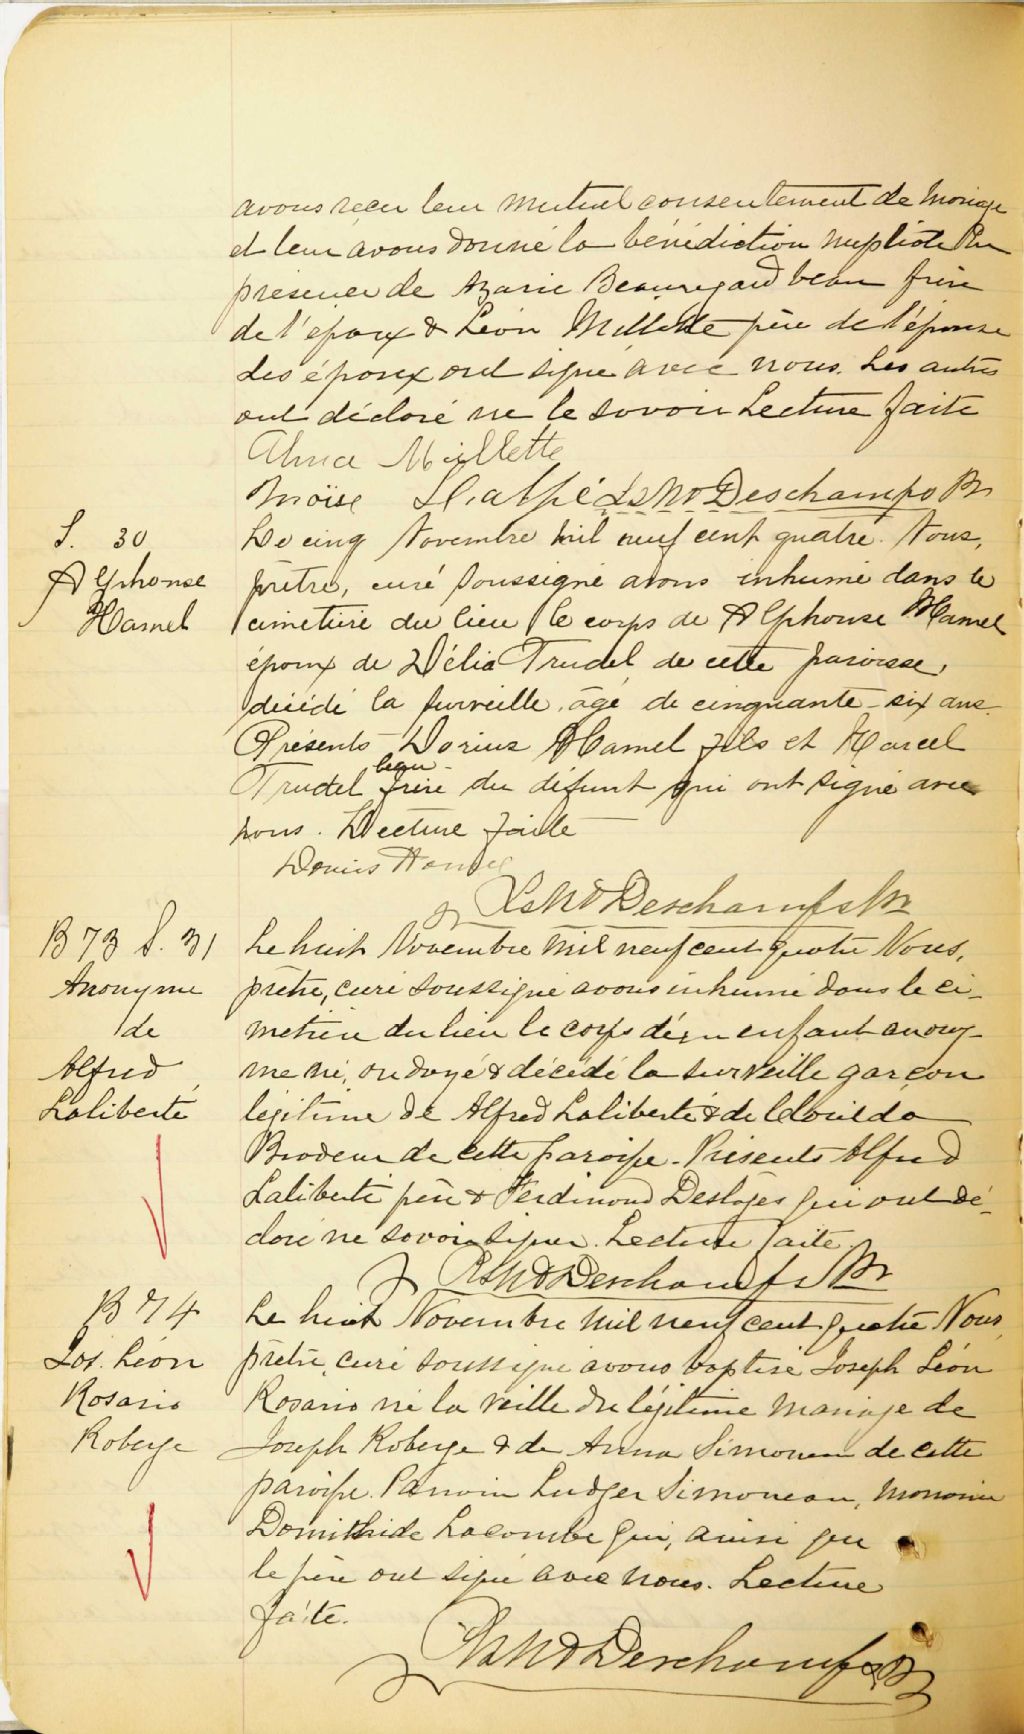 avons reçu leur mutuel consentement de Mariage
et leur avons donné la bénédiction nuptiale En
présence de Azarie Beauregard beau frère
de l'époux & Léon Millette père de l'épouse
Les époux ont signé avec nous. Les autres
ont déclaré ne le savoir Lecture faite
Alma Millette
Moïse Ls Nd Deschamps Ptr
S. 30
Alphonse
Hamel
Le cinq Novembre mil neuf cent quatre. Nous,
prêtre, curé soussigné avons inhumé dans le
cimetière du lieu le corps de Alphonse Hamel
époux de Délia Trudel de cette paroisse,
décédé la surveille, âgé de cinquante-six ans.
Présents Dorius Hamel fils et Marcel
Trudel beau-frère du défunt qui ont signé avec
nous. Lecture faite
Hamel
Ls Nd Deschamps Ptr
B 73 S. 31
Anonyme
de
Alfred
Laliberté
Le huit Novembre mil neuf cent quatre Nous,
prêtre, curé soussigné avons inhumé dans le ci-
metière du lieu le corps d'un enfant anony-
me né, ondoyé & décédé la surveille garçon
légitime de Alfred Laliberté & de Clouilda
Brodeur de cette paroisse. Présents Alfred
Laliberté père & Ferdinand Deslages qui ont dé-
claré ne savoir signer. Lecture faite.
Ls Nd Deschamps Ptr
B 74
Jos. Léon
Rosario
Roberge
Le huit Novembre mil neuf cent quatre Nous
prêtre, curé soussigné avons baptisé Joseph Léon
Rosario né la veille du légitime mariage de
Joseph Roberge & de Anna Simoneau de cette
paroisse. Parrain Ludger Simoneau, marraine
Domithilde Lacombe qui, ainsi que
le père ont signé avec nous. Lecture
faite.
Ls Nd Deschamps Ptr